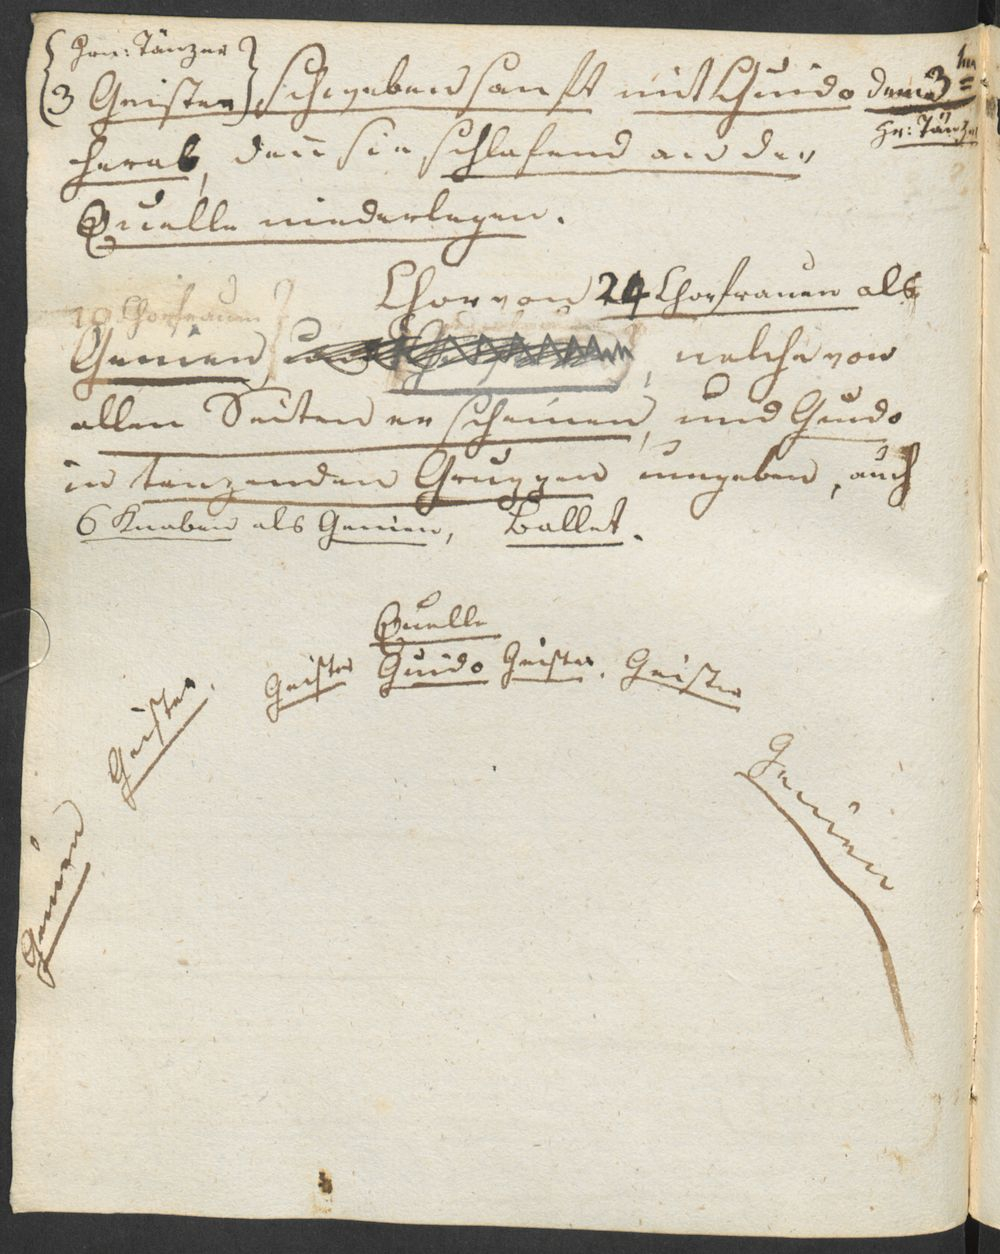 Hrn: Tänzer
3 Geister, schweben sanft mit Guido
Hr: Tänzer
herab, den sie schlafend an der
Quelle niederlegen.
Chor von 24 Chorfrauen als
10 Chorfrauen
Genien, welche von
allen Seiten erscheinen, und Guido
in tanzenden Gruppen umgeben, auch
6 Knaben als Genien, Ballet.
Quelle
Geister Guido Geister. Geister
Geister.
Genien
Genien